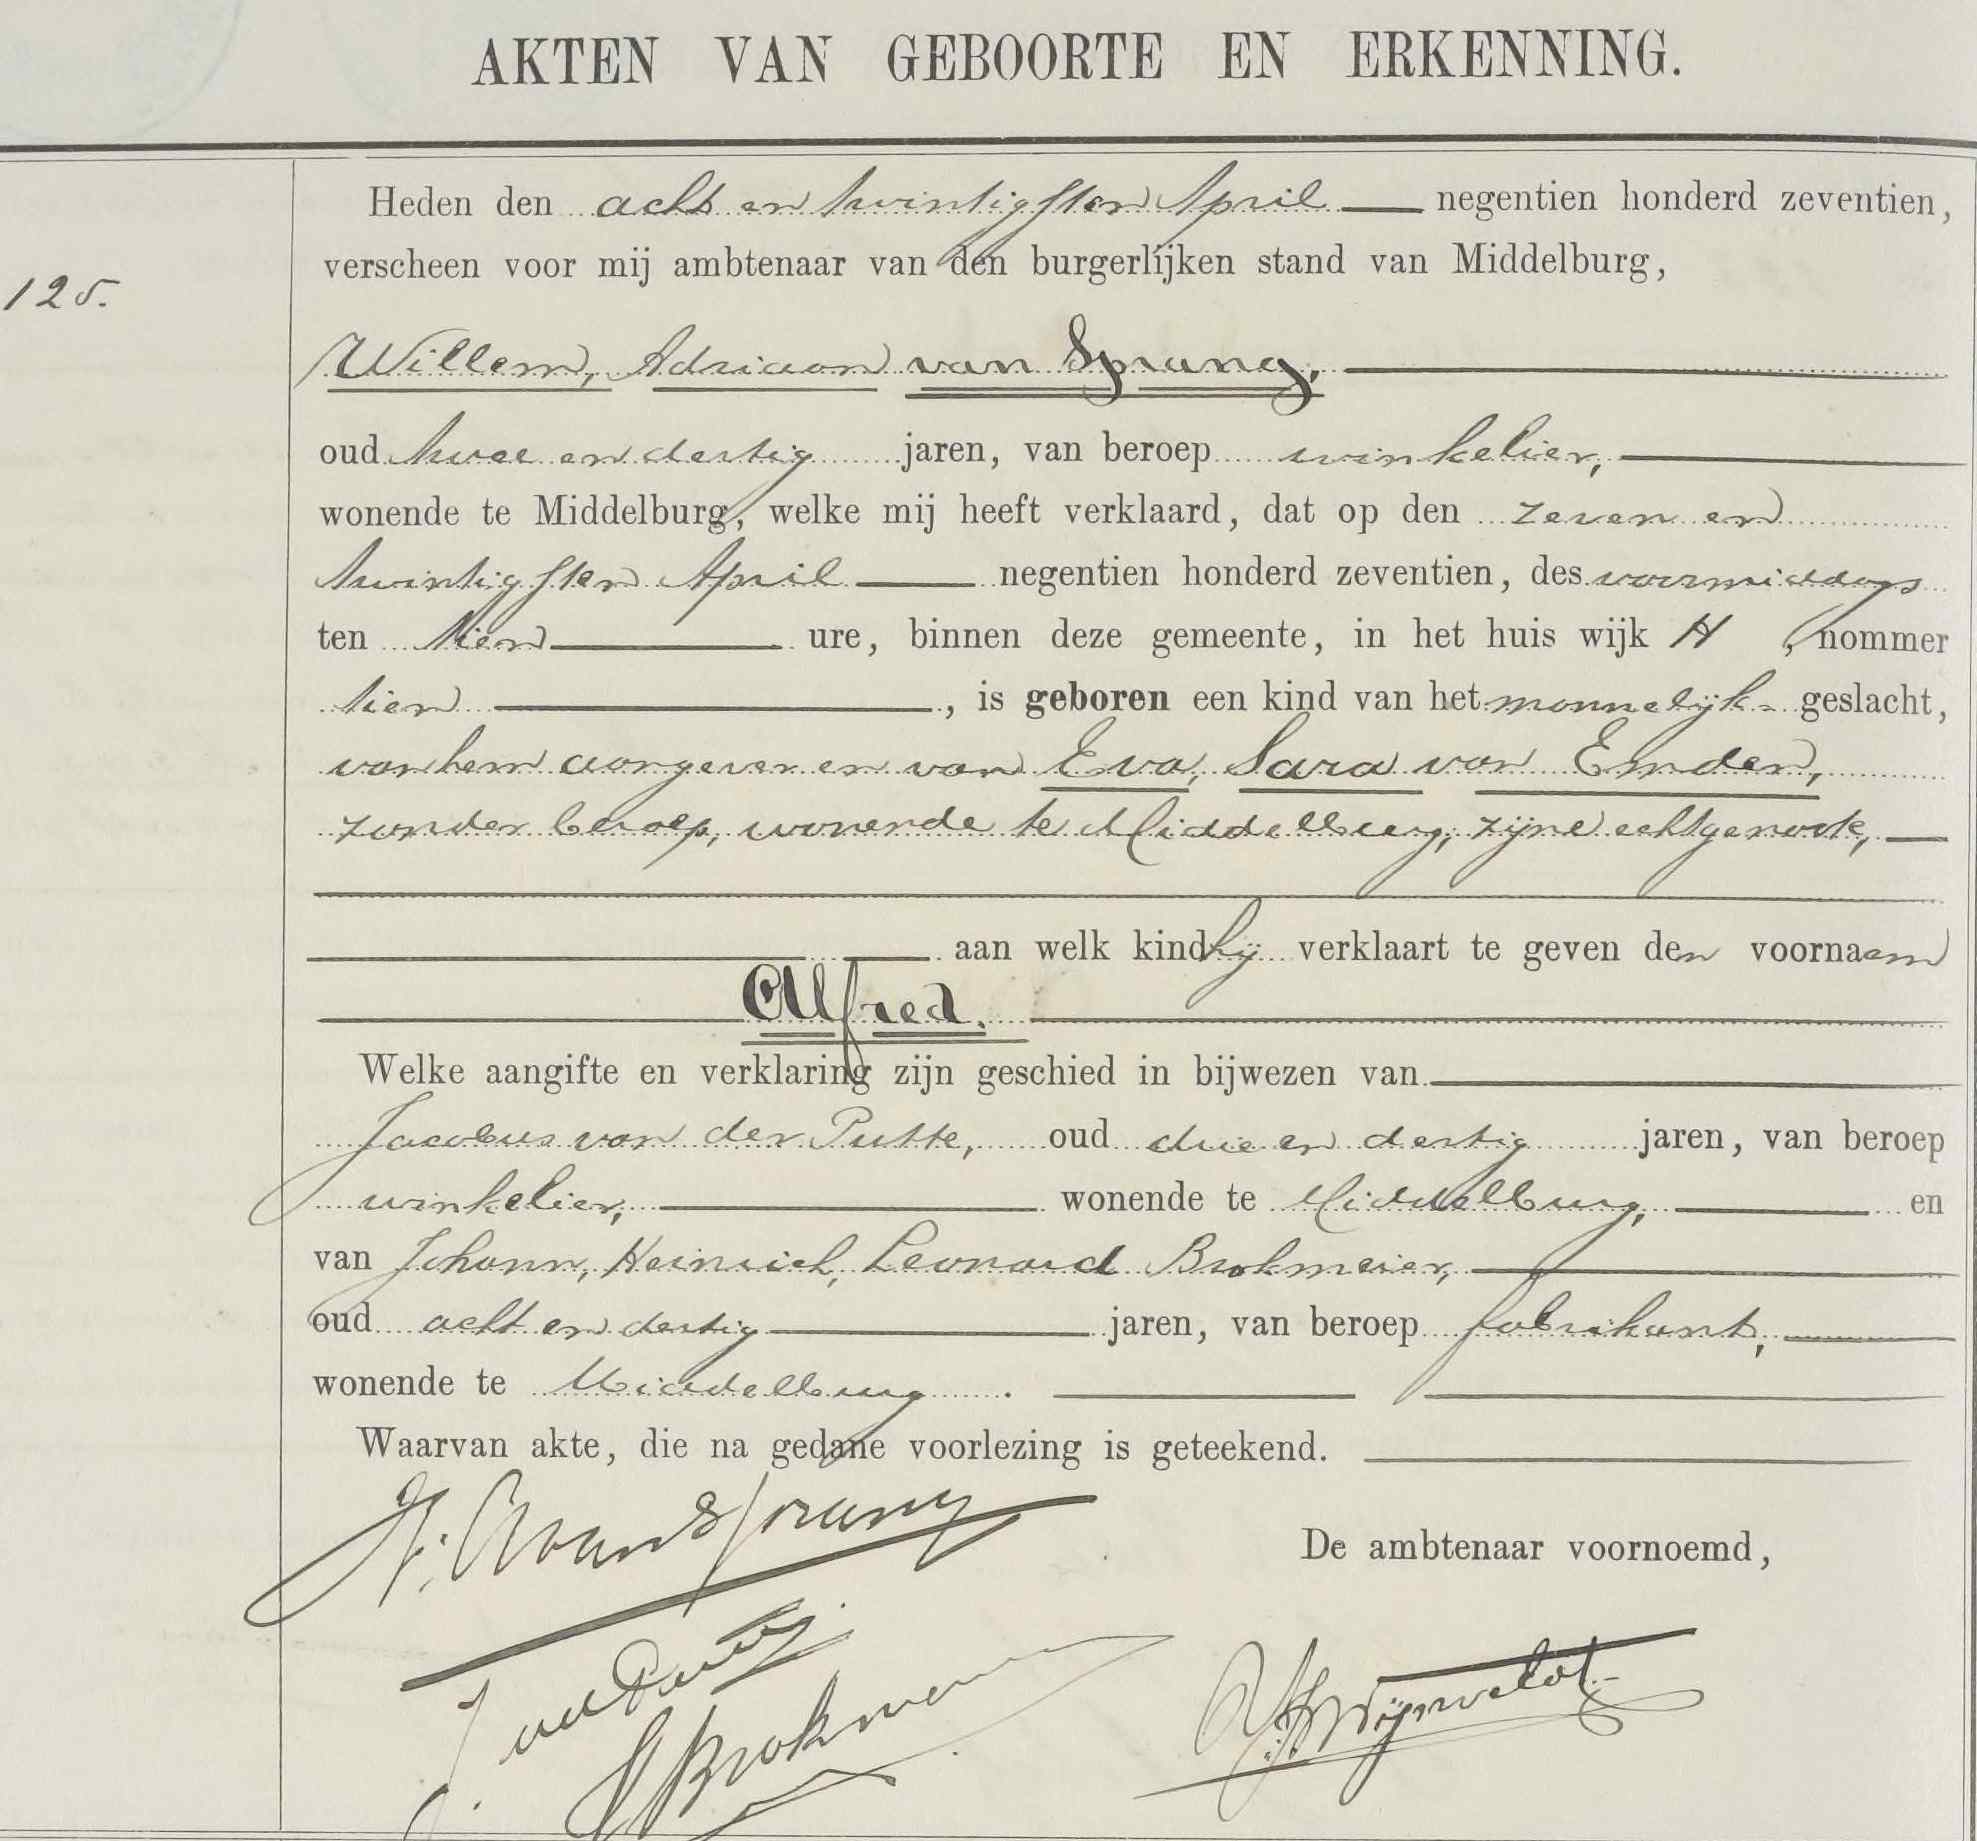 AKTEN VAN GEBOORTE EN ERKENNING.
Heden den acht en twintigsten April negentien honderd zeventien,
verscheen voor mij ambtenaar van den burgerlijken stand van Middelburg,
125.
Willem, Adriaan van Sprang,
oud twee en dertig jaren, van beroep winkelier,
wonende te Middelburg, welke mij heeft verklaard, dat op den zeven en
twintigsten April negentien honderd zeventien, des voormiddags
ten tien ure, binnen deze gemeente, in het huis wijk H, nommer
tien, is geboren een kind van het mannelijk geslacht,
van hem aangever en van Eva, Sara van Emden,
zonder beroep, wonende te Middelburg, zijne echtgenoote,
aan welk kind hij verklaart te geven den voornaam
Alfred.
Welke aangifte en verklaring zijn geschied in bijwezen van
Jacobus van der Putte, oud drie en dertig jaren, van beroep
winkelier, wonende te Middelburg, en
van Johann, Heinrich, Leonard Brokmeier,
oud acht en dertig jaren, van beroep fabrikant,
wonende te Middelburg.
Waarvan akte, die na gedane voorlezing is geteekend.
W. A van Sprang
De ambtenaar voornoemd,
J vd Putte
Brokmeier